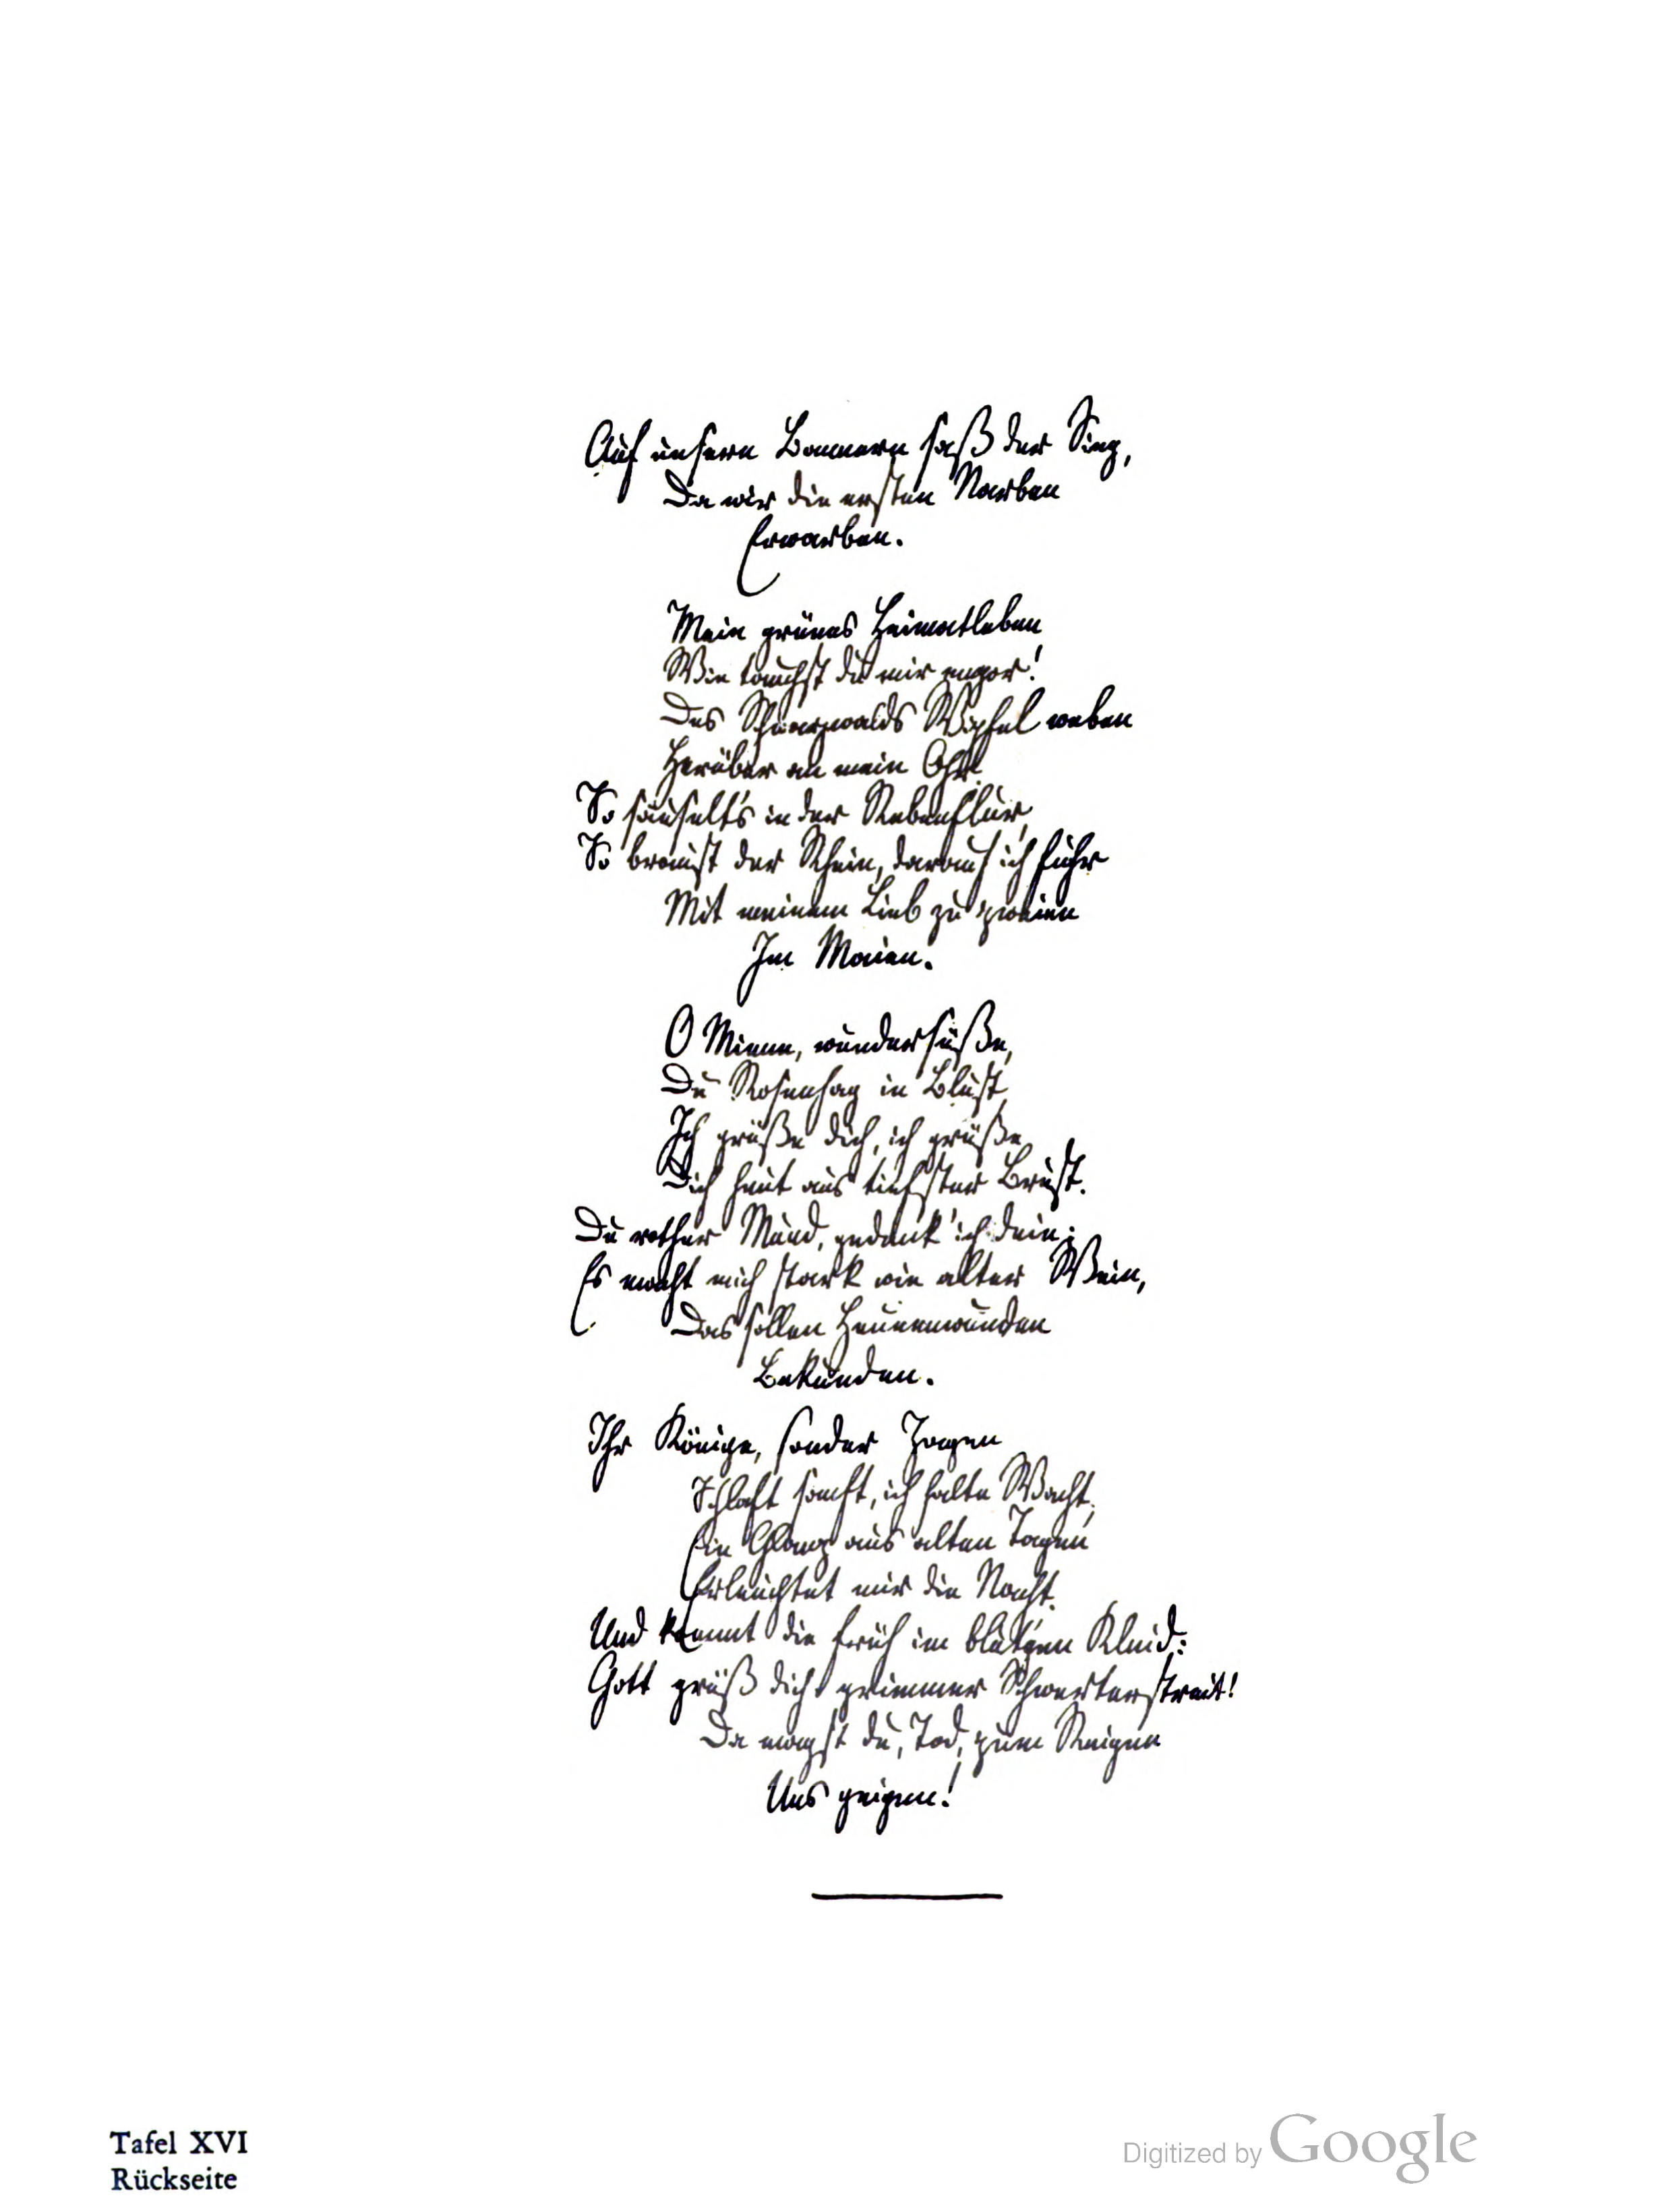 Auf unsern Bannern saß der Sieg,
Da wir die ersten Narben
Erwarben.
Mein grünes Heimatleben
Wie tauchst du mir empor!
Des Schwarzwalds Wipfel weben
Herüber an mein Ohr.
So säuselt's in der Rebenflur,
So braust der Rhein, darauf ich fuhr
Mit meinem Lieb zu zweien
Im Maien.
O Minne, wundersüße,
Du Rosenhag in Blust,
Ich grüße dich, ich grüße
Dich heut aus tiefster Brust.
Du rother Mund, gedenk' ich dein;
Es macht mich stark wie alter Wein,
Das sollen Heunenwunden
Bekunden.
Ihr Könige, sonder Zagen
Schlaft sanft, ich halte Wacht;
Ein Glanz aus alten Tagen
Erleuchtet mir die Nacht.
Und kommt die Früh im blut'gen Kleid:
Gott grüß dich grimmer Schwerterstreit!
Da magst du, Tod, zum Reigen
Uns geigen!
Tafel XVI
Rückseite
Digitized by Google